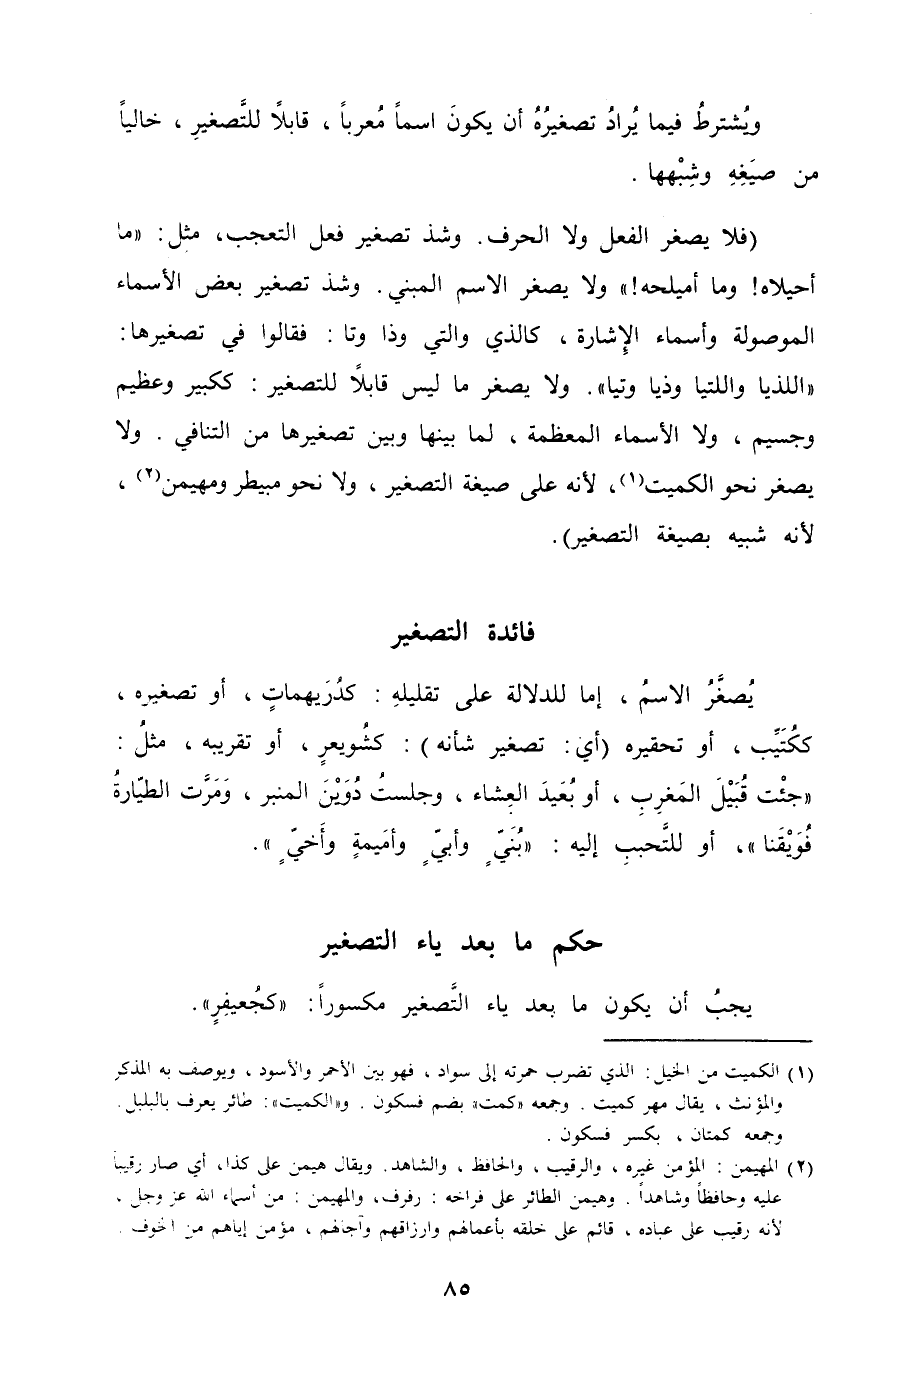 ويُشترطُ فيما يُرادُ تصغيرُهُ أن يكونَ اسماً مُعرباً ، قابلًا للتَّصغيرِ ، خالياً
من صيَغِهِ وشِبْهها .
(فلا يصغر الفعل ولا الحرف. وشذ تصغير فعل التعجب، مثل: «ما
أحيلاه! وما أميلحه!» ولا يصغر الاسم المبني. وشذ تصغير بعض الأسماء
الموصولة وأسماء الإِشارة ، كالذي والتي وذا وتا : فقالوا في تصغيرها:
«اللذيا واللتيا وذيا وتيا». ولا يصغر ما ليس قابلًا للتصغير : ككبير وعظيم
وجسيم ، ولا الأسماء المعظمة ، لما بينها وبين تصغيرها من التنافي . ولا
يصغر نحو الكميت(١)، لأنه على صيغة التصغير ، ولا نحو مبيطر ومهيمن(٢) ،
لأنه شبيه بصيغة التصغير).
فائدة التصغير
يُصغَّرُ الاسمُ ، إما للدلالة على تقليلهِ : كدُرَيهماتٍ ، أو تصغيره ،
ككُتَيِّب ، أو تحقيره (أي: تصغير شأنه) : كشُويعرٍ ، أو تقريبه ، مثلُ :
«جئْت قُبَيْلَ المَغربِ ، أو بُعَيدَ العِشاء ، وجلستُ دُوَيْنَ المنبر ، وَمَرَّت الطيّارةُ
فُوَيْقَنا »، أو للتَّحببِ إليه : «بُنَيّ ٍ وأبيّ ٍ وأمَيمةٍ وأَخيّ ٍ ».
حكم ما بعد ياء التصغير
يجبُ أن يكون ما بعد ياء التَّصغير مكسوراً: «كجُعيفِرٍ».
(١) الكميت من الخيل: الذي تضرب حمرته إلى سواد ، فهو بين الأحمر والأسود ، ويوصف به المذكر
والمؤنث ، يقال مهر كميت . وجمعه «كمت» بضم فسكون . و«الكميت»: طائر يعرف بالبلبل .
وجمعه كمتان ، بكسر فسكون .
(٢) المهيمن : المؤمن غيره ، والرقيب ، والحافظ ، والشاهد. ويقال هيمن على كذا، أي صار رقيباً
عليه وحافظاً وشاهداً . وهيمن الطائر على فراخه : رفرف، والمهيمن : من أسماء الله عز وجل ،
لأنه رقيب على عباده ، قائم على خلقه بأعمالهم وارزاقهم وآجالهم ، مؤمن إياهم من الخوف .
٨٥